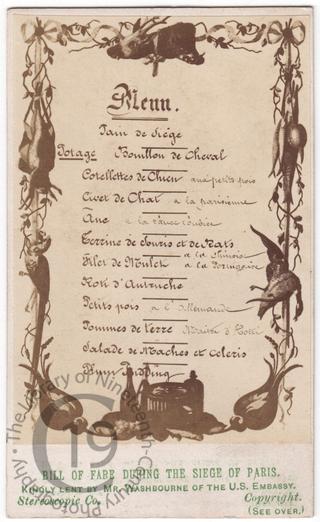 Menu.
Pain de Siège
Potage Bouillon de Cheval
Cotellettes de Chien aux petits pois
Civet de Chat à la parisienne
Ane à la sauce
Terrine de Souris et de Rats
à la Chinoise
Filet de Mulet à la
Roti d'Autruche
Petits pois à l'Allemande
Pommes de terre Maitre d'
Salade de Maches et celeris
Plum Pudding
BILL OF FARE DURING THE SIEGE OF PARIS.
KINDLY LENT BY MR. WASHBOURNE OF THE U.S. EMBASSY.
Stereoscopic Co. Copyright.
(SEE OVER.)
19
The Library of Nineteenth-Century Photography